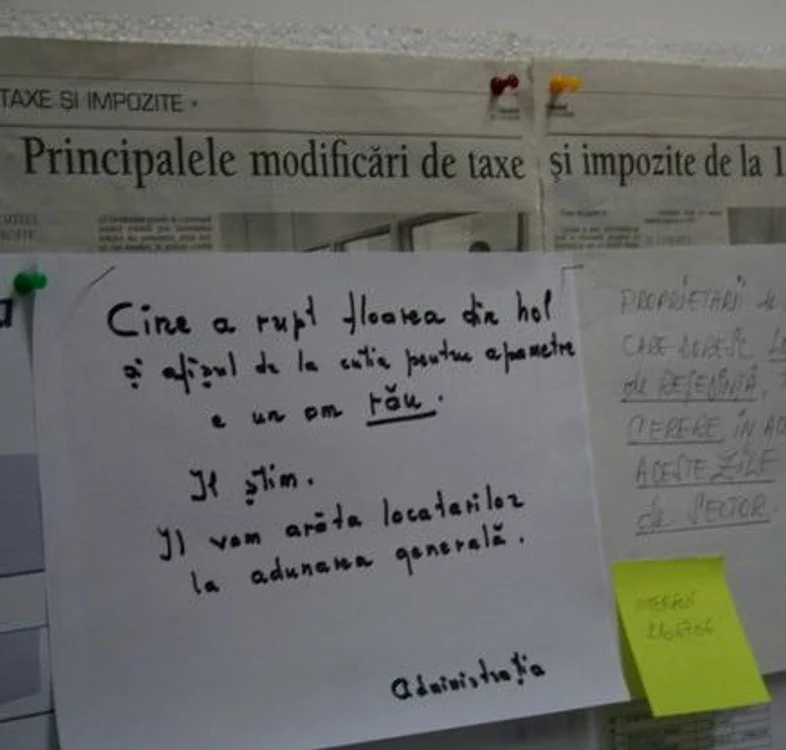 TAXE ȘI IMPOZITE
Principalele modificări de taxe și impozite de la 1
Cine a rupt floarea din hol
și afișul de la cutia pentru apometre
e un om rău.
Îl știm.
Îl vom arăta locatarilor
la adunarea generală.
Administrația
PROPRIETARII
CARE DORESC
de REȘEDINȚĂ,
CERERE ÎN
ACESTE ZILE
de SECTOR.